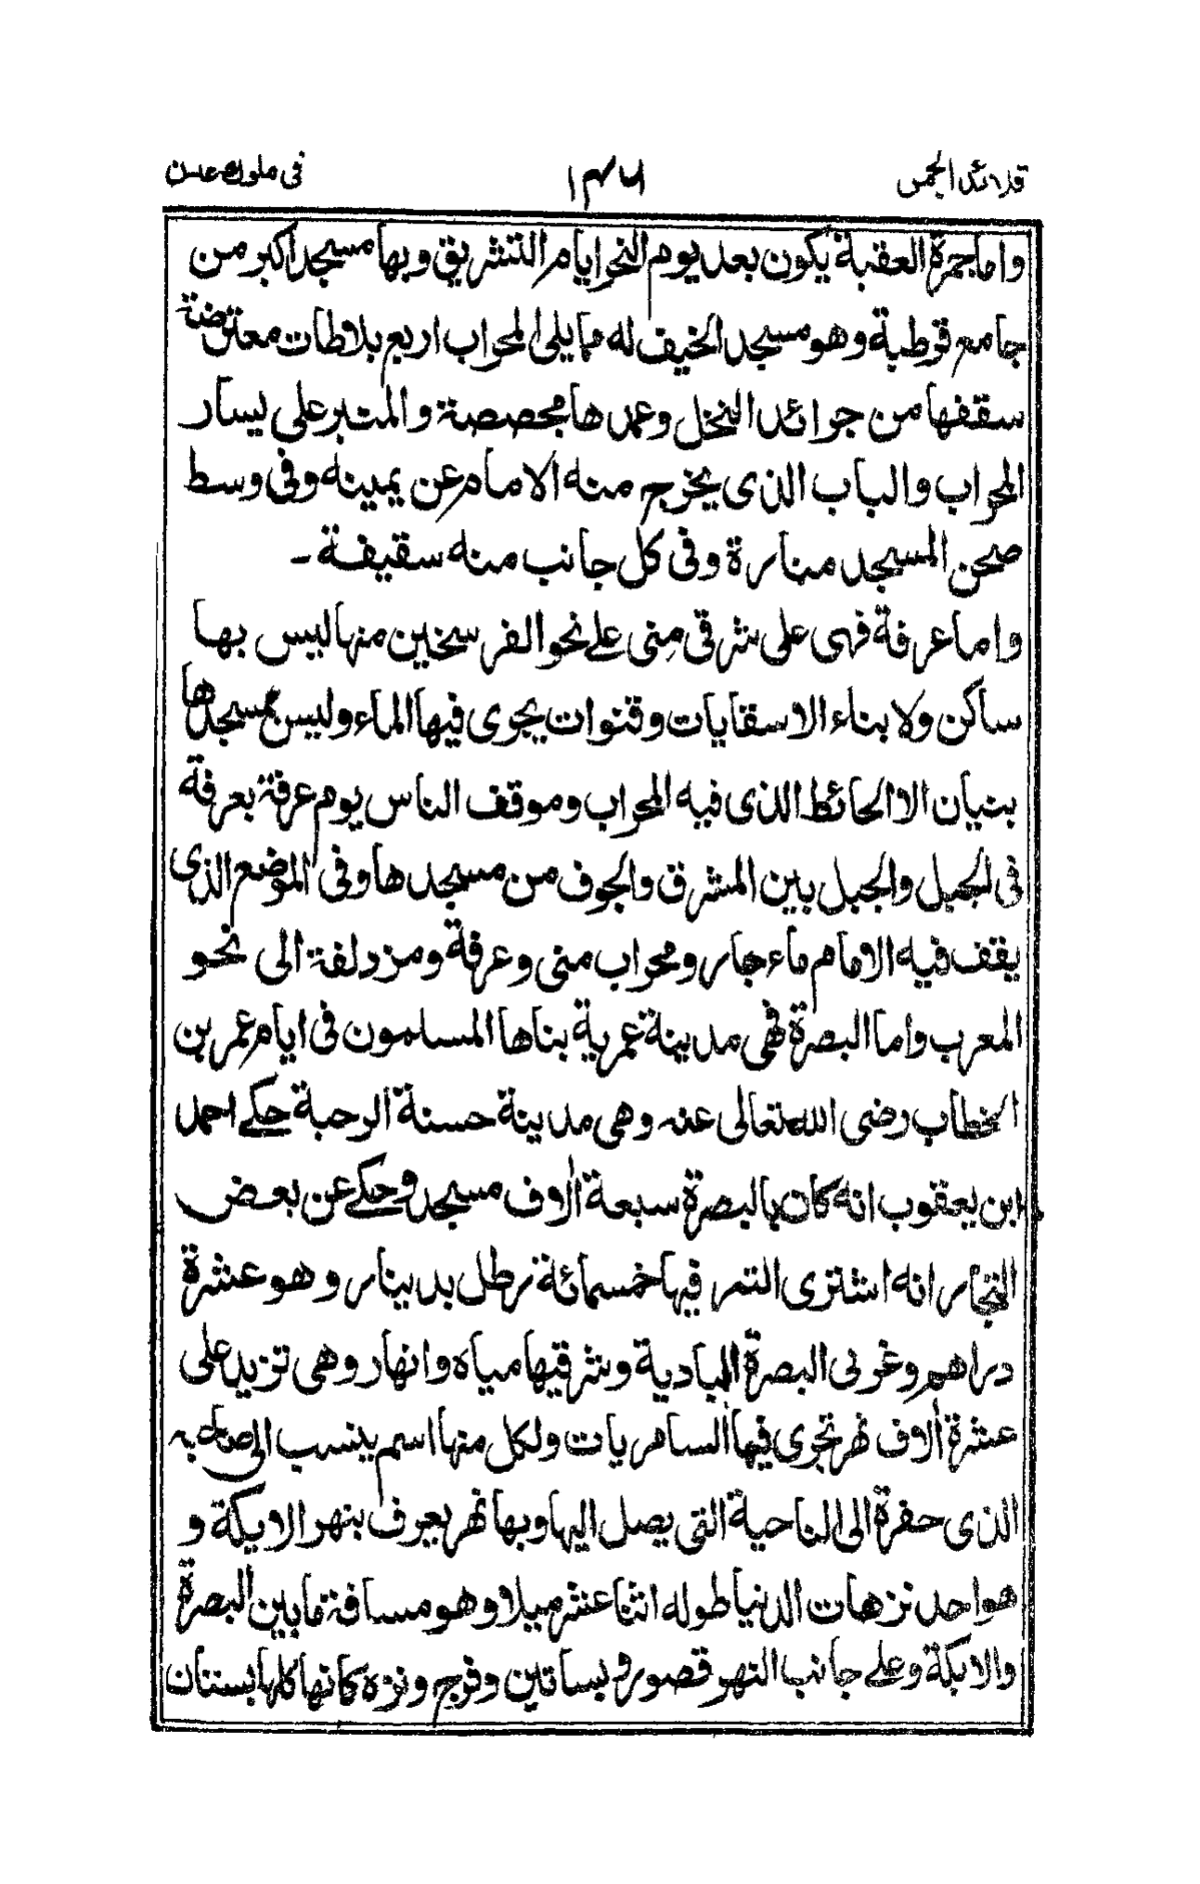 قلائد الجمن
في ملوك عدن
واما جمرة العقبة يكون بعد يوم النحر ايام التشريق وبها مسجد اكبر من
جامع قرطبة وهو مسجد الخيف له مما يلى المحراب اربع بلاطات معترضة
سقفها من جرائد النخل وعمدها مجصصة والمتبر على يسار
المحراب والباب الذى يخرج منه الامام عن يمينه وفى وسط
صحن المسجد منارة وفى كل جانب منه سقيفة -
واما عرفة فهى على شرقى مِنى على نحو الفرسخين منها ليس بها
ساكن ولا بناء الا سقايات وقنوات يجرى فيها الماء وليس بمسجدها
بنيان الا الحائط الذى فيه المحراب وموقف الناس يوم عرفة بعرفة
فى الجبل والجبل بين المشرق والجوف من مسجدها وفى الموضع الذى
يقف فيه الامام ماء جار ومحراب منى وعرفة ومزدلفة الى نحو
المغرب واما البصرة فهى مدينة عمرية بناها المسلمون فى ايام عمر بن
الخطاب رضى الله تعالى عنه وهى مدينة حسنة الرحبة حكے احمد
ابن يعقوب انه كان بالبصرة سبعة اٰلاف مسجد وحكے عن بعض
التجار انه اشترى التمر فيها خمسمائة رطل بدينار وهو عشرة
دراهم وغربى البصرة البادية وشرقيها مياه وانهار وهى تزيد على
عشرة اٰلاف نهر تجرى فيها السامريات ولكل منها اسم ينسب الى صاحبه
الذى حفرة الى الناحية التى يصل اليها وبها نهر يعرف بنهر الايكة و
هو احد نزهات الدنيا طوله اثنا عشر ميلا وهو مسافة ما بين البصرة
والايكة وعلے جانب النهر قصور و بساتين وفرج ونزه كانها كلها بستان